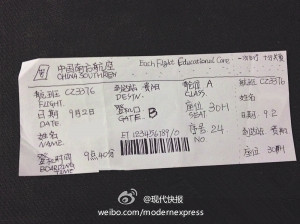 中国南方航空 Each Flight Educational Care
CHINA SOUTHERN
航班 CZ3376 到达站 贵阳 舱位 A 航班 CZ3376
FLIGHT DESTN. CLASS 姓名
日期 9月2日 登机口 座位 30H 日期 9.2
DATE GATE B SEAT
姓名 序号 24 到达站 贵阳
NAME ET 123456189/0 NO
登机时间 9点40分 座位 30H
BOARDING
TIME
@现代快报
weibo.com/modernexpress